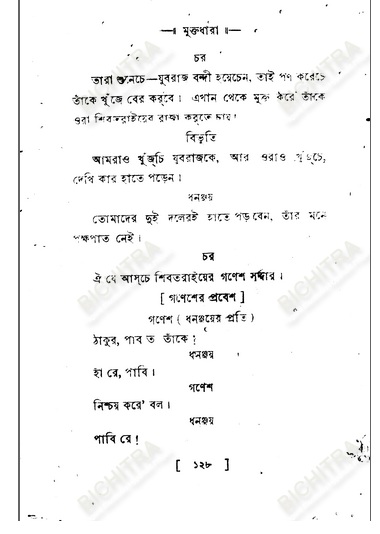 মুক্তধারা
চর
তারা শুনেচে—যুবরাজ বন্দী হয়েচেন, তাই পণ করেচে
তাঁকে খুঁজে বের করবে। এখান থেকে মুক্ত করে তাঁকে
ওরা শিবতরাইয়ের রাজা করতে চায়।
বিভূতি
আমরাও খুঁজচি যুবরাজকে, আর ওরাও খুঁজচে,
দেখি কার হাতে পড়েন।
ধনঞ্জয়
তোমাদের দুই দলেরই হাতে পড়বেন, তাঁর মনে
পক্ষপাত নেই।
চর
ঐ যে আসচে শিবতরাইয়ের গণেশ সর্দ্দার।
[ গণেশের প্রবেশ ]
গণেশ ( ধনঞ্জয়ের প্রতি )
ঠাকুর, পাব ত তাঁকে?
ধনঞ্জয়
হাঁ রে, পাবি।
গণেশ
নিশ্চয় করে' বল।
ধনঞ্জয়
পাবি রে!
[ ১২৮ ]
BICHITRA
BICHITRA
BICHITRA
BICHITRA
BICHITRA
BICHITRA